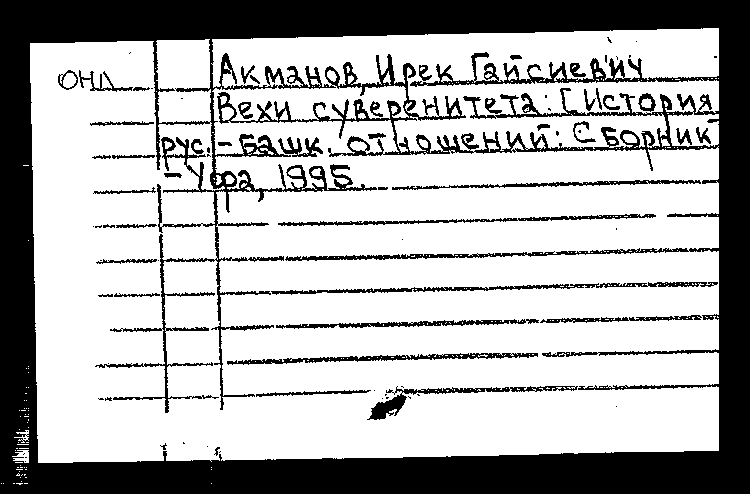 ОНЛ
Акманов, Ирек Гайсиевич
Вехи суверенитета: [История
рус.-башк. отношений: Сборник
-Уфа, 1995.